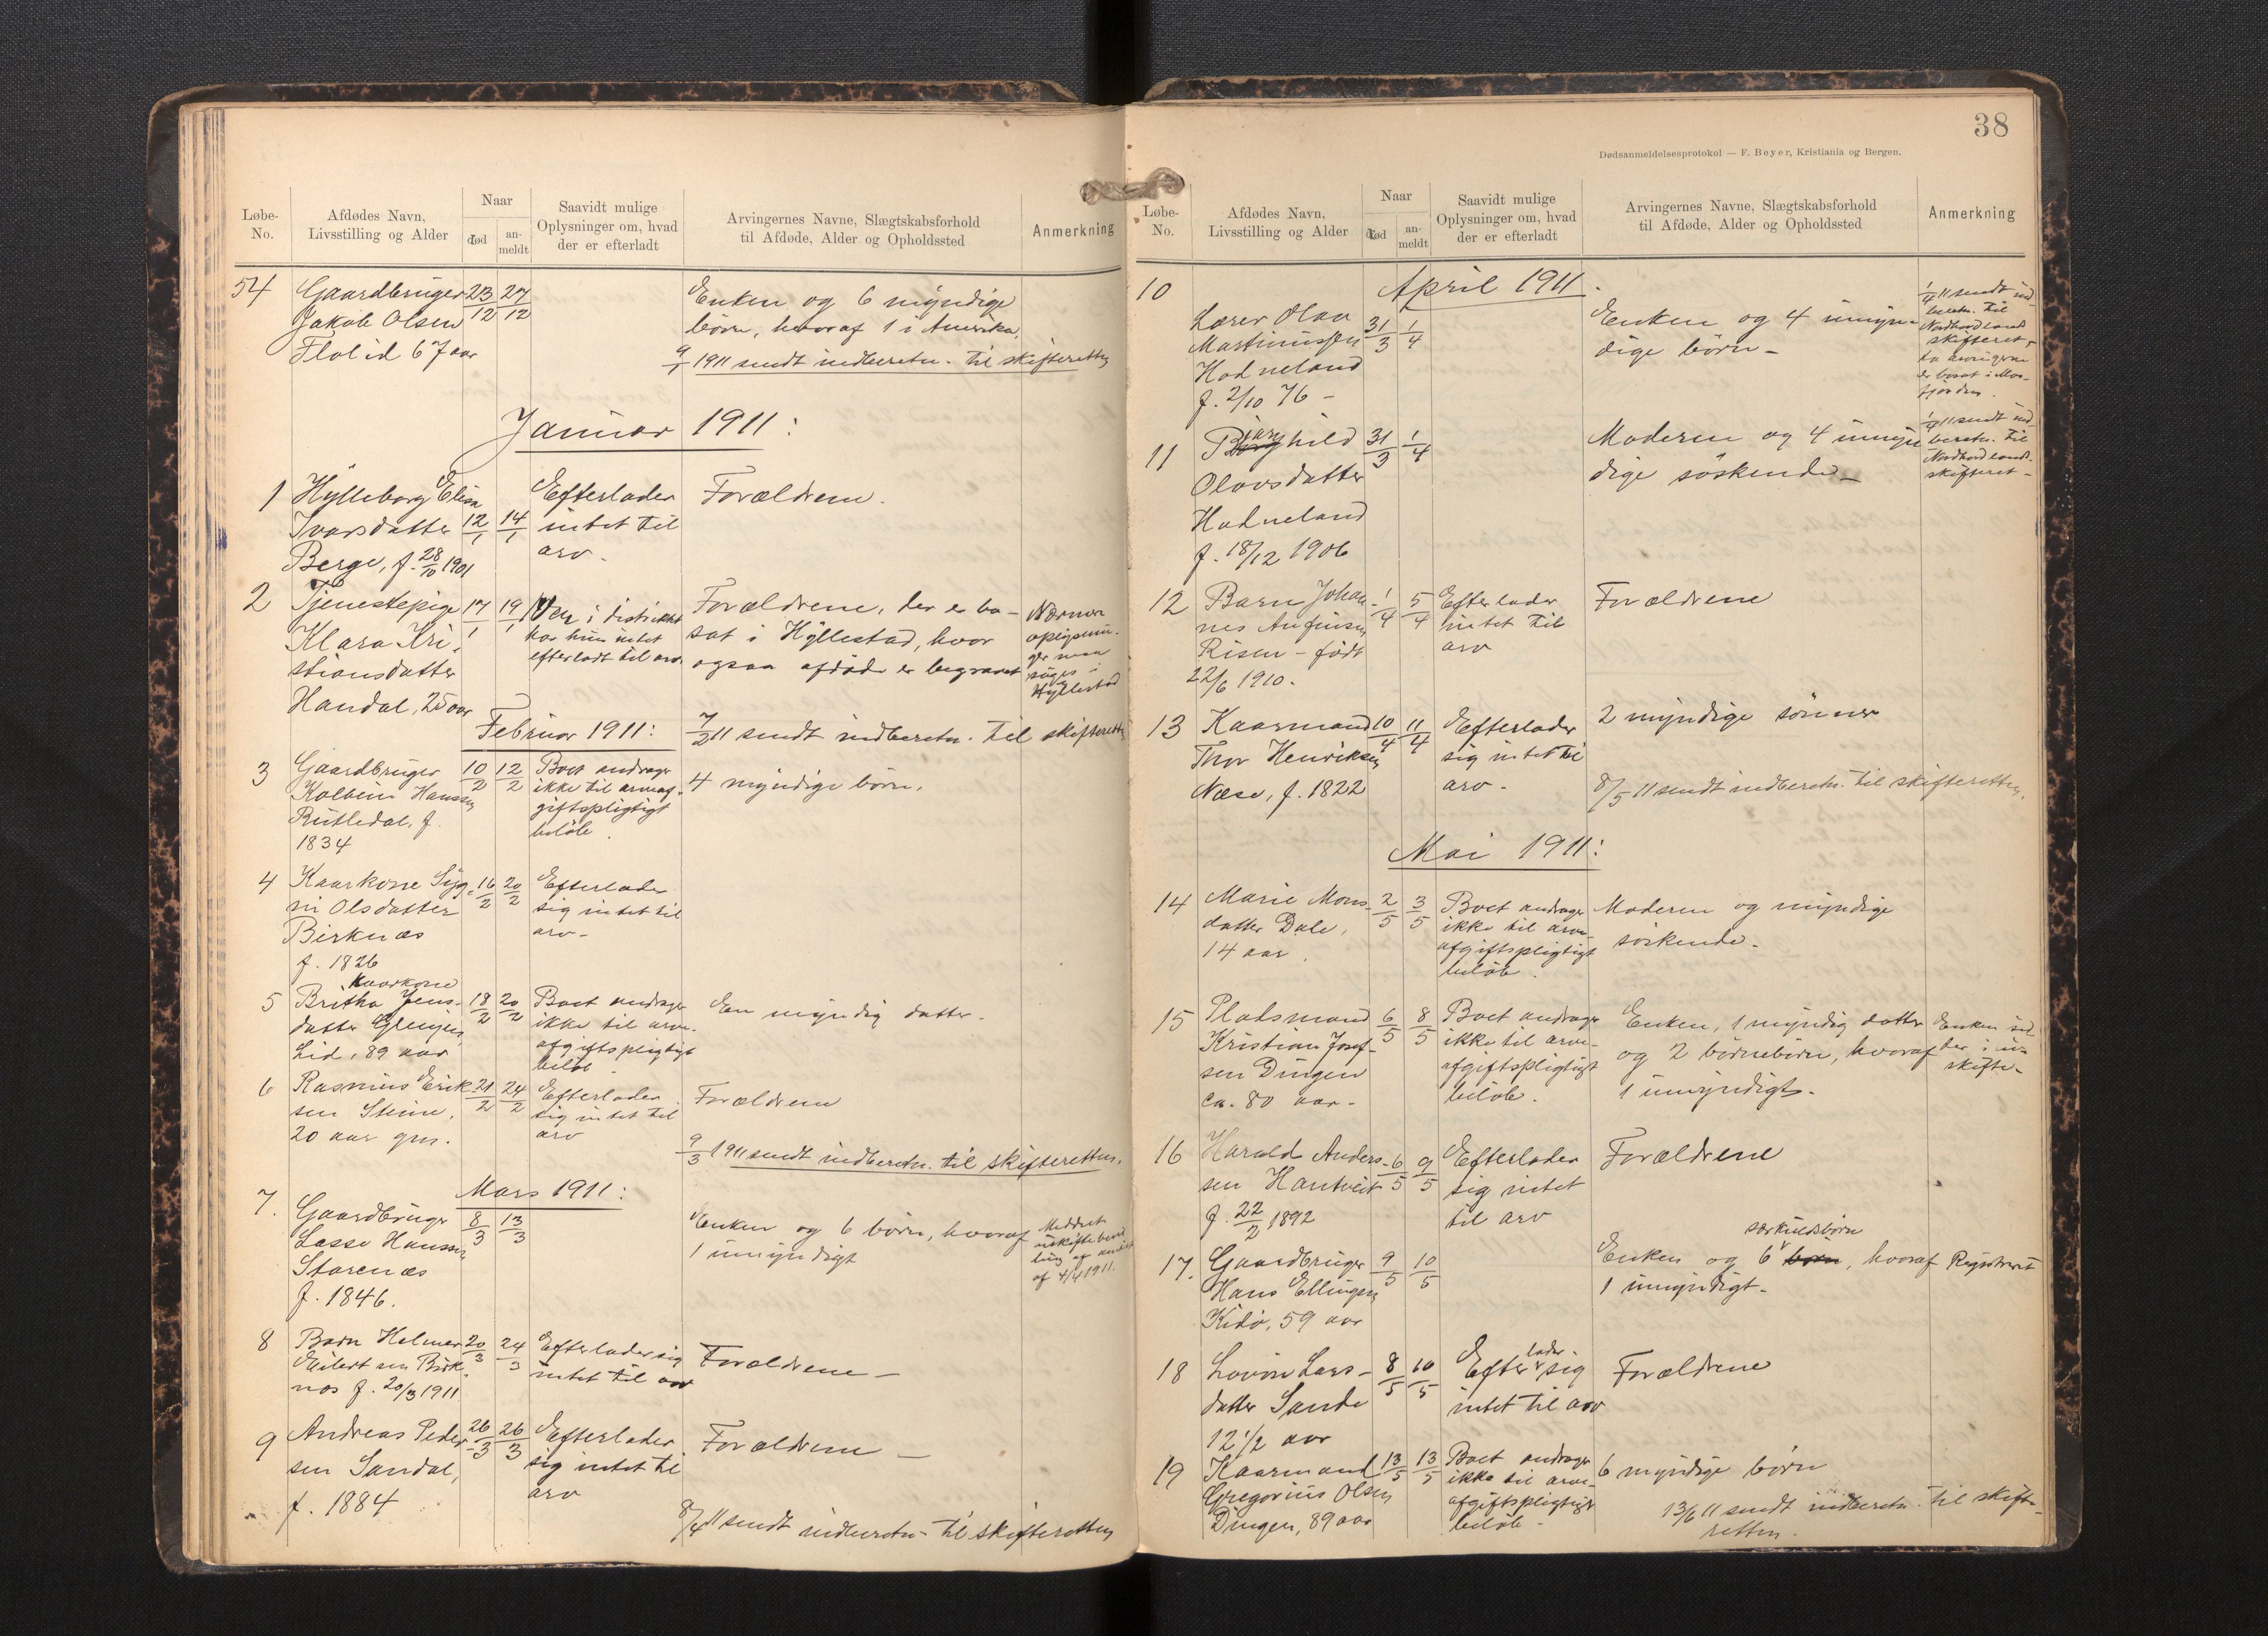 Løbe-
No.
Afdødes Navn,
Livsstilling og Alder
Naar
død
an-
meldt
Saavidt mulige
Oplysninger om, hvad
der er efterladt
Arvingernes Navne, Slægtskabsforhold
til Afdøde, Alder og Opholdssted
Anmerkning
54 Gaardbruger 23/12 27/12 Enken og 6 myndige
Jakob Olsen børn, hvoraf 1 i Amerika.
Flolid 67 aar 9/1 1911 sendt indberetn. til skifteretten
Januar 1911:
1 Hylleborg Elisa Efterlader Forældrene.
Ivarsdatter 12/1 14/1 intet til
Berge, f. 28/10 1901 arv.
2 Tjenestepige 17/1 19/1 Her i distriktet Forældrene, der er bo- Nærmere
Klara Kri- har hun intet sat i Hyllestad, hvor oplysnin-
stiansdatter efterladt til arv. ogsaa afdøde er begravet ger maa
Handal, 25 aar søges i
Hyllestad
Februar 1911: 7/2 11 sendt indberetn. til skifteretten
3 Gaardbruger 10/2 12/2 Boet andrager 4 myndige børn.
Kolbein Hanssen ikke til arveaf-
Rutledal, f. giftspligtigt
1834 beløb.
4 Kaarkone Sig- 16/2 20/2 Efterlader
ni Olsdatter sig intet til
Birknæs arv-
f. 1826
Kaarkone
5 Britha Jens- 18/2 20/2 Boet andrager En myndig datter.
datter ikke til arve-
Lid, 89 aar afgiftspligtigt
beløb
6 Rasmus Erik- 21/2 24/2 Efterlader Forældrene
sen Steine, sig intet til
20 aar gm. arv
9/3 1911 sendt indberetn. til skifteretten.
Mars 1911:
7. Gaardbruger 8/3 13/3 Enken og 6 børn, hvoraf Meddelt
Lasse Hanssen 1 umyndigt uskiftebevil-
Storenæs ling af
f. 1846. af 4/4 1911.
8 Barn Helmer 20/3 24/3 Efterlader sig Forældrene -
Eilertsen Birk- intet til arv
næs f. 20/3 1911
9 Andreas Peder- 26/3 26/3 Efterlader Forældrene -
sen Sandal, sig intet til
f. 1884 arv
8/4 11 sendt indberetn- til skifteretten
38
Dødsanmeldelsesprotokol — F. Beyer, Kristiania og Bergen.
Løbe-
No.
Afdødes Navn,
Livsstilling og Alder
Naar
død
an-
meldt
Saavidt mulige
Oplysninger om, hvad
der er efterladt
Arvingernes Navne, Slægtskabsforhold
til Afdøde, Alder og Opholdssted
Anmerkning
10 April 1911. 1/4 11 sendt ind-
Lærer Olau 31/3 1/4 Enken og 4 umyn- beretn. til
Martinussen dige børn - Nordhordlands
Hodneland skifteret,
f. 2/10 76 - da arvingerne
er bosat i Mas-
fjorden.
11 Borghild 31/3 1/4 Moderen og 4 umyn- 1/4 11 sendt ind-
Olavsdatter dige søskende - beretn. til
Hodneland Nordhordlands
f. 18/12 1906 skifteret -
12 Barn Johan- 1/4 5/4 Efterlader Forældrene
nes Anfinsen intet til
Risen - født arv
22/6 1910.
13 Kaarmand 10/4 11/4 Efterlader 2 myndige sønner
Thor Henriksen sig intet til
Næse, f. 1822 arv. 8/5 11 sendt indberetn. til skifteretten.
Mai 1911:
14 Marie Mons- 2/5 3/5 Boet andrager Moderen og myndige
datter Dale, ikke til arve- søskende.
14 aar afgiftspligtigt
beløb.
15 Pladsmand 6/5 8/5 Boet andrager Enken, 1 myndig datter Enken sid-
Kristian Josef- ikke til arve- og 2 børnebørn, hvoraf der i u-
sen Dingen afgiftspligtigt 1 umyndigt. skifte.
ca. 80 aar - beløb.
16 Harald Anders- 6/5 9/5 Efterlader Forældrene
sen Hantveit sig intet
f. 22/2 1892 til arv
særkuldsbørn
17. Gaardbruger 9/5 10/5 Enken og 6 børn, hvoraf Registreret
Hans Ellingsen 1 umyndigt.
Kidø, 59 aar
18 Lovise Lars- 8/5 10/5 Efterlader sig Forældrene
datter Sande intet til arv
12 1/2 aar
19 Kaarmand 13/5 13/5 Boet andrager 6 myndige børn
Gregorius Olsen ikke til arve-
Dingen, 89 aar afgiftspligtigt 13/6 11 sendt indberetn. til skifte-
beløb - retten.